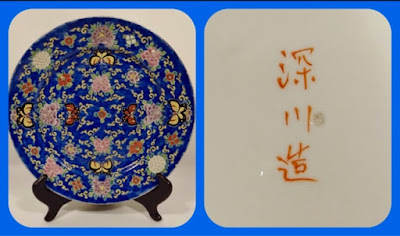 深
川
造